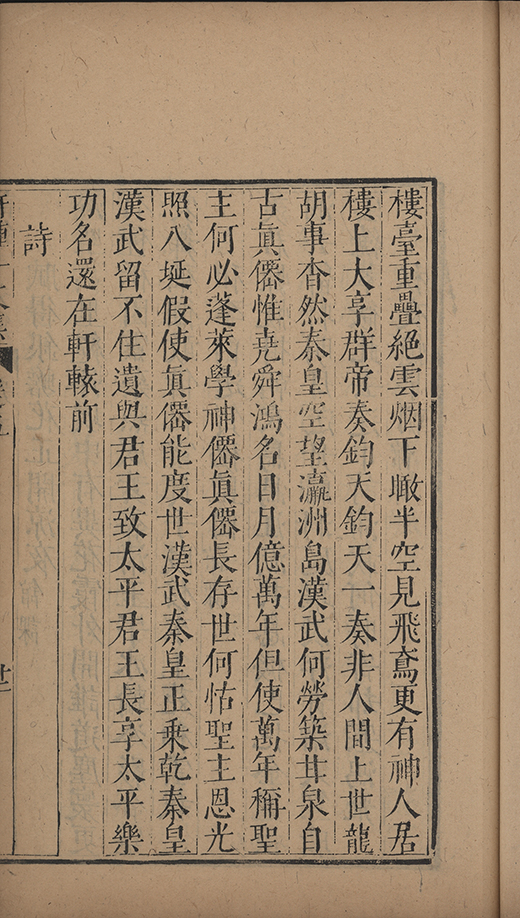 樓臺重疊絕雲烟下瞰半空見飛鳶更有神人居
樓上大享群帝奏鈞天鈞天一奏非人間上世龍
胡事杳然秦皇空望瀛洲島漢武何勞築甘泉自
古眞僊惟堯舜鴻名日月億萬年但使萬年稱聖
主何必蓬萊學神僊眞僊長存世何怙聖主恩光
照八埏假使眞僊能度世漢武秦皇正乗乾秦皇
漢武留不住遺與君王致太平君王長享太平樂
功名還在軒轅前
詩